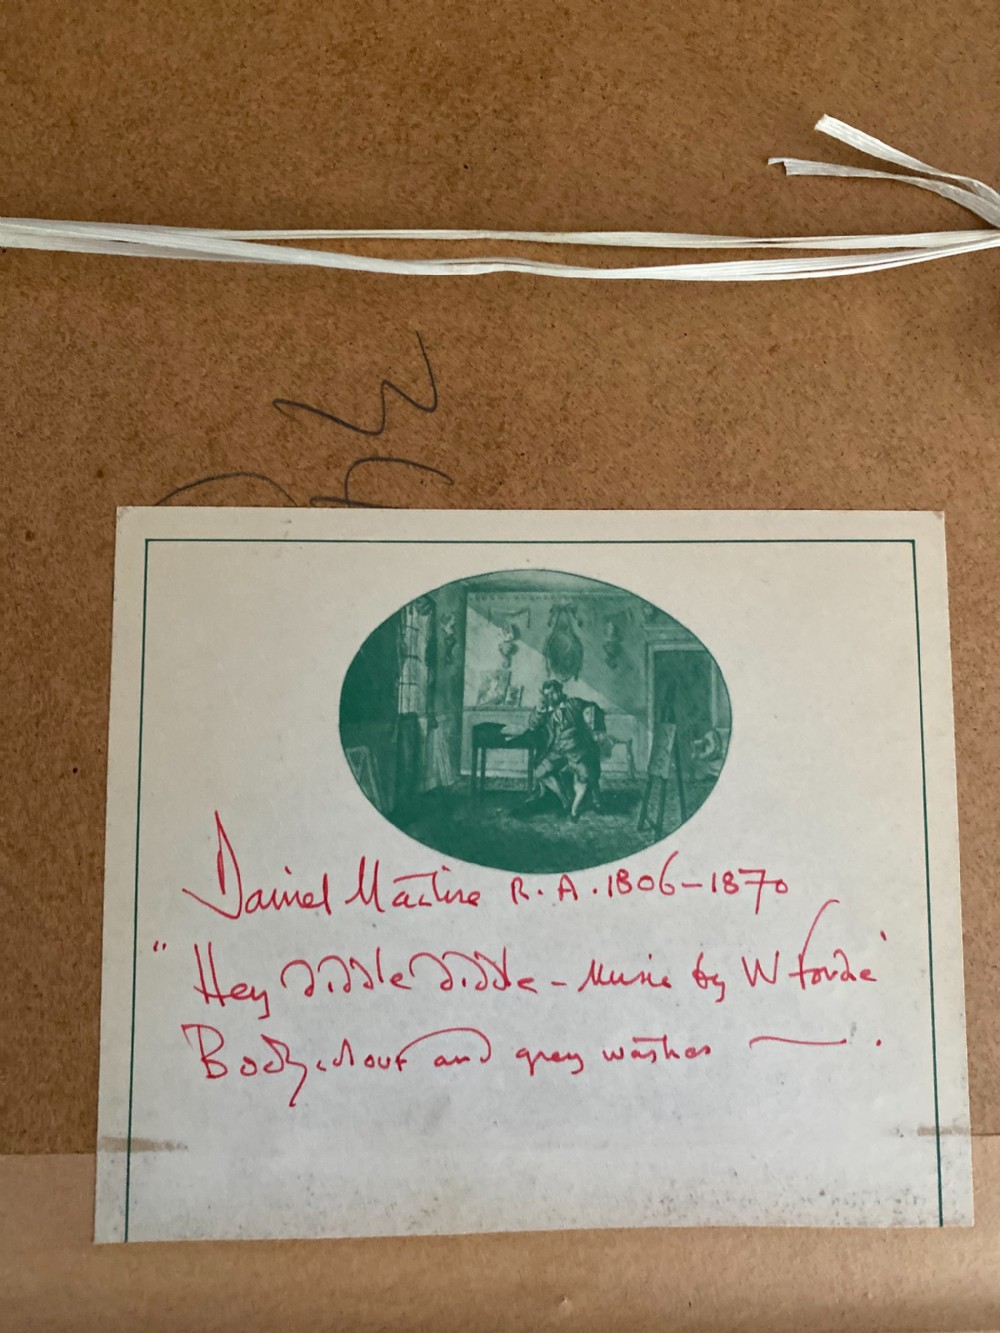 Daniel Maclise R.A. 1806-1870
"Hey diddle diddle - Music by W Forde"
Bodycolour and grey washes